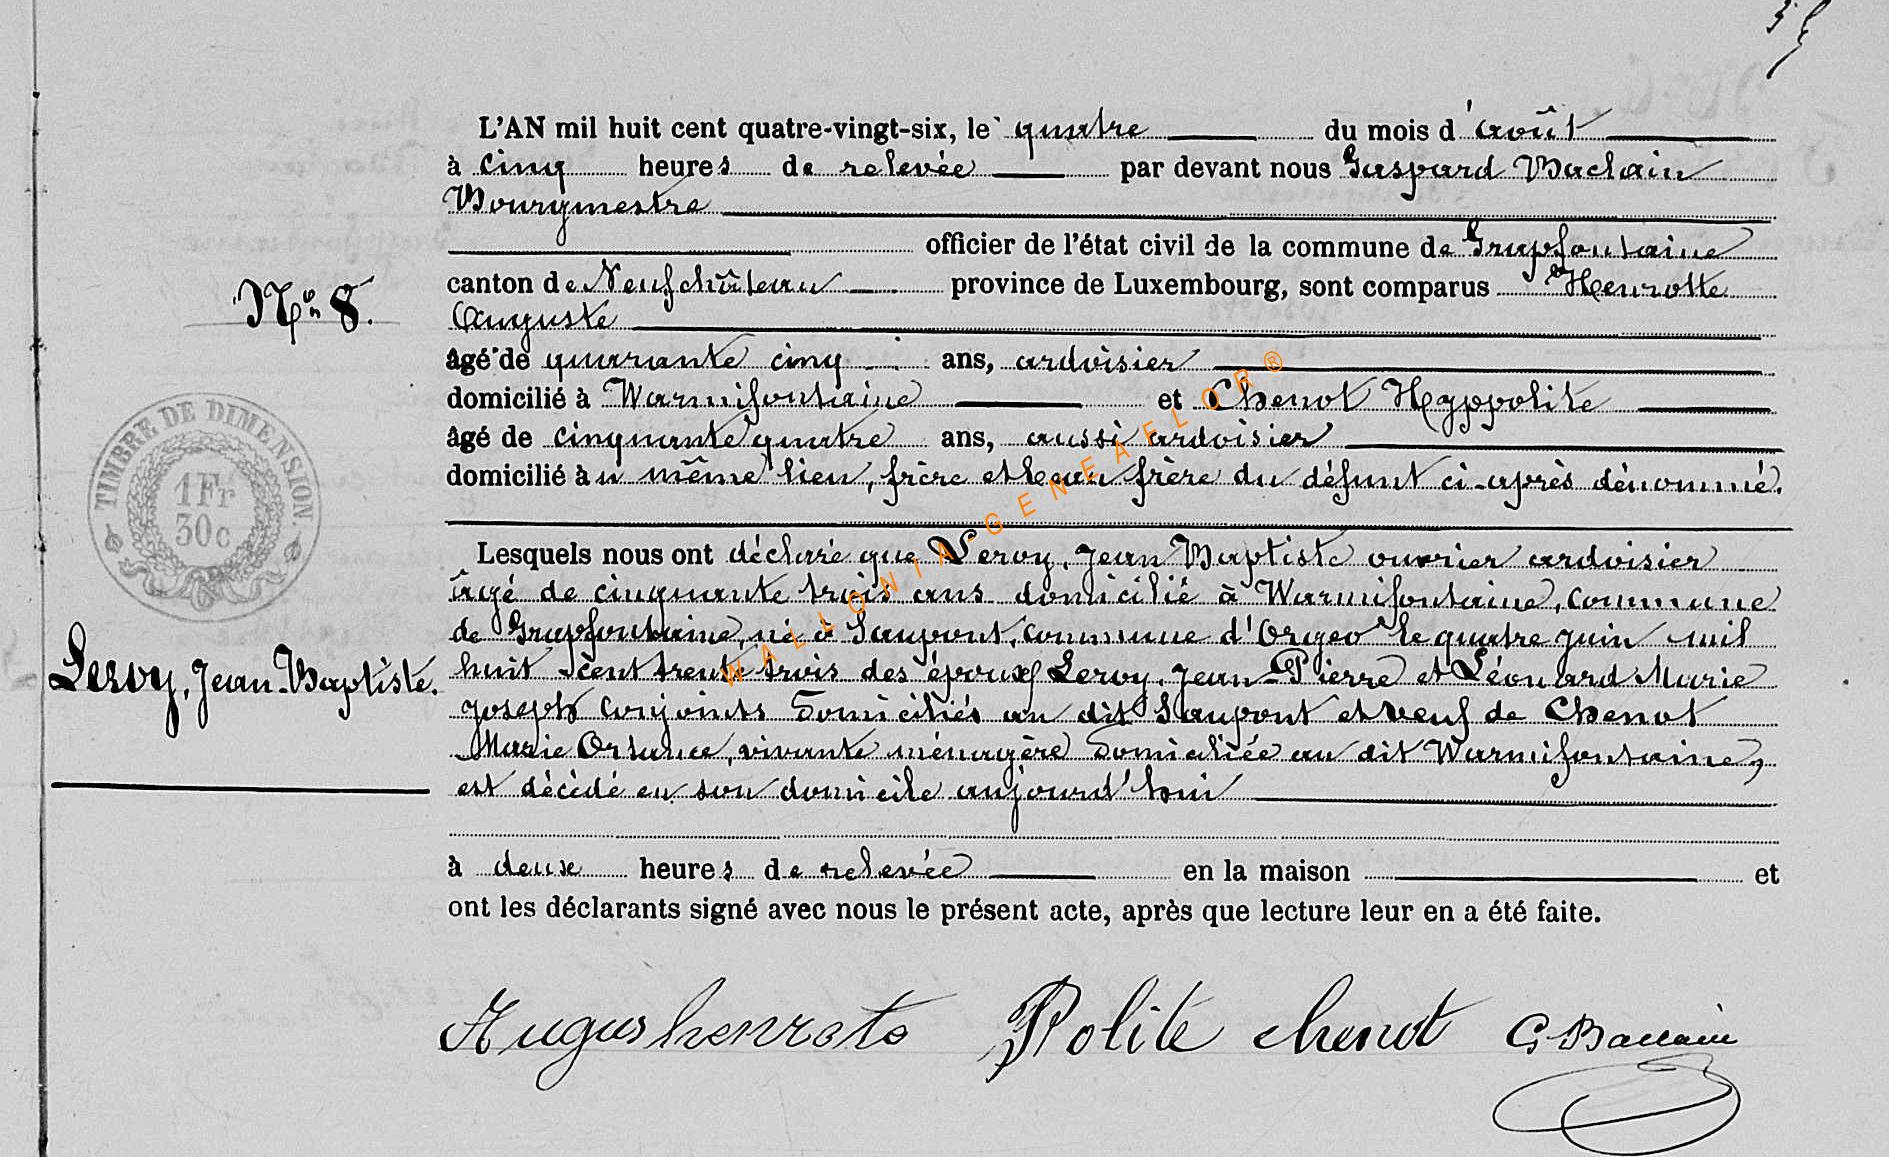 L'AN mil huit cent quatre-vingt-six, le quatre du mois d'août
à cinq heures de relevée par devant nous Gaspard Baclain
Bourgmestre
officier de l'état civil de la commune de Grapfontaine
canton de Neufchâteau province de Luxembourg, sont comparus Henrotte
Auguste
âgé de quarante cinq ans, ardoisier
domicilié à Warmifontaine et Chenot Hyppolite
âgé de cinquante quatre ans, aussi ardoisier
domicilié au même lieu, frère et beau frère du défunt ci-après dénommé.
Nº 8.
TIMBRE DE DIMENSION.
1Fr
30c
Leroy, Jean-Baptiste.
Lesquels nous ont déclaré que Leroy, Jean Baptiste ouvrier ardoisier
âgé de cinquante trois ans domicilié à Warmifontaine, commune
de Grapfontaine, né à Saupont, commune d'Orgeo le quatre juin mil
huit cent trente trois des époux Leroy, Jean-Pierre et Léonard Marie
Joseph conjoints domiciliés au dit Saupont et veuf de Chenot
Marie Ortance, vivante ménagère domiciliée au dit Warmifontaine,
est décédé en son domicile aujourd'hui
à deux heures de relevée en la maison et
ont les déclarants signé avec nous le présent acte, après que lecture leur en a été faite.
Augus henrote Polite chenot G. Baclain
WALLONIA-GENEAFLOR®